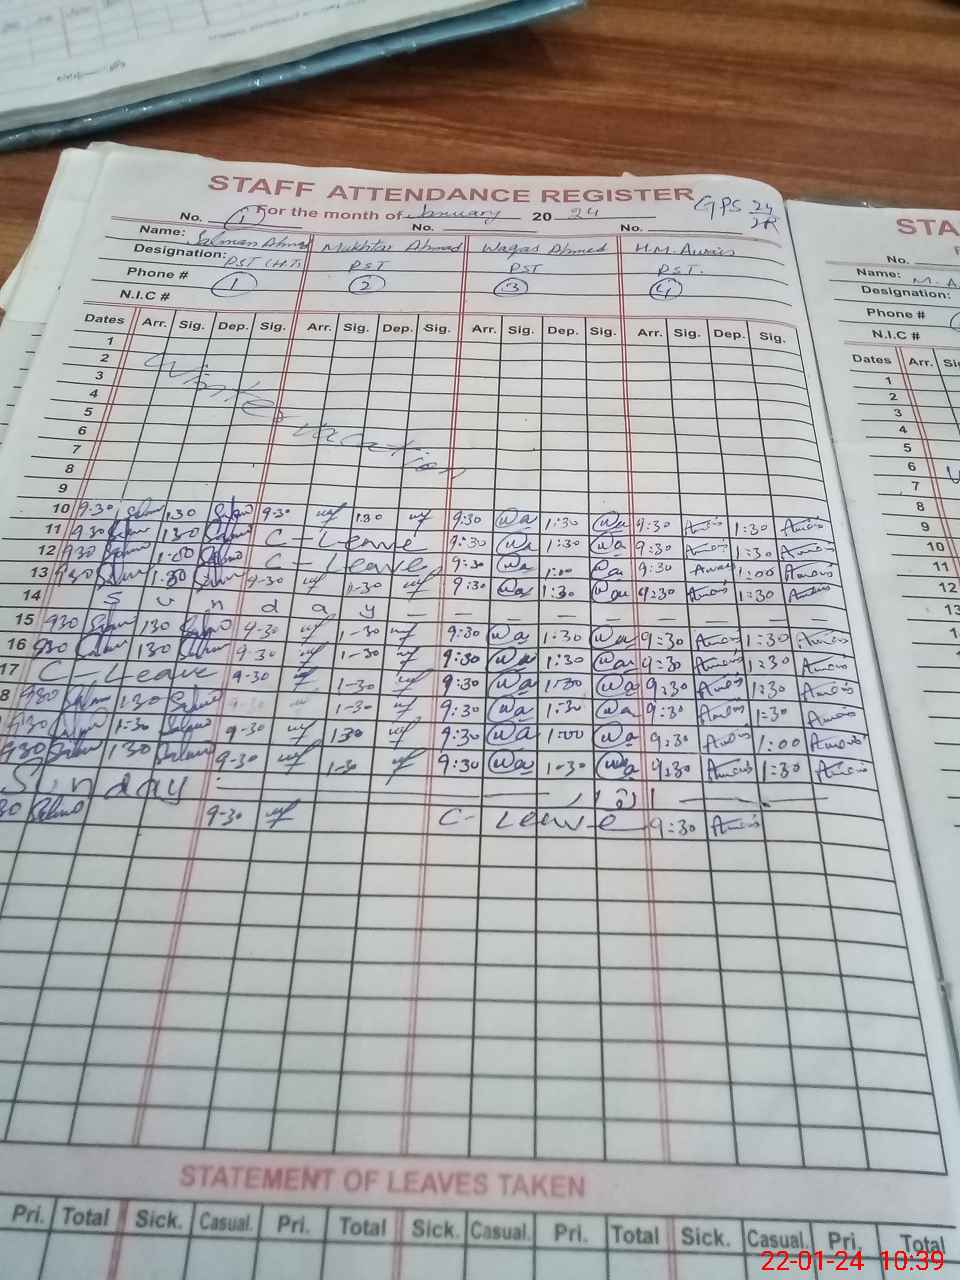 STAFF ATTENDANCE REGISTER
GPS 24/2R
No. 1 For the month of January 2024
No. No.
Name: Salman Ahmad Mukhtar Ahmad Waqas Ahmed H.M. Awais
Designation: PST (H.T) PST PST PST.
Phone # 1 2 3 4
N.I.C #
Dates Arr. Sig. Dep. Sig. Arr. Sig. Dep. Sig. Arr. Sig. Dep. Sig. Arr. Sig. Dep. Sig.
1
2
3
4
5
6
7
8
9
Winter vacation
10 9:30 Salman 1:30 Salman 9-30 1:30 9:30 Wa 1:30 Wa 9:30 Awais 1:30 Awais
11 930 Salman 130 Salman C-Leave 9:30 Wa 1:30 Wa 9:30 Awais 1:30 Awais
12 930 Salman 1:00 Salman C-Leave 9:30 Wa 1:00 Wa 9:30 Awais 1:00 Awais
13 930 Salman 1:30 Salman 9-30 1-30 9:30 Wa 1:30 Wa 9:30 Awais 1:30 Awais
14 Sunday — — — — — —
15 930 Salman 130 Salman 9-30 1-30 9:30 Wa 1:30 Wa 9:30 Awais 1:30 Awais
16 930 Salman 130 Salman 9-30 1-30 9:30 Wa 1:30 Wa 9:30 Awais 1:30 Awais
17 C-Leave 9-30 1-30 9:30 Wa 1:30 Wa 9:30 Awais 1:30 Awais
8 930 Salman 1:30 Salman 9-30 1-30 9:30 Wa 1:30 Wa 9:30 Awais 1:30 Awais
930 Salman 1:30 Salman 9-30 130 9:30 Wa 1:00 Wa 9:30 Awais 1:00 Awais
930 Salman 130 Salman 9-30 1-30 9:30 Wa 1-30 Wa 9:30 Awais 1:30 Awais
Sunday اتوار
30 Salman 9-30 C-Leave 9:30 Awais
STATEMENT OF LEAVES TAKEN
Pri. Total Sick. Casual. Pri. Total Sick. Casual. Pri. Total Sick. Casual. Pri. Total
STA
No.
Name: M. A
Designation:
Phone #
N.I.C #
Dates Arr.
1
2
3
4
5
6
7
8
9
10
11
12
13
14
22-01-24 10:39